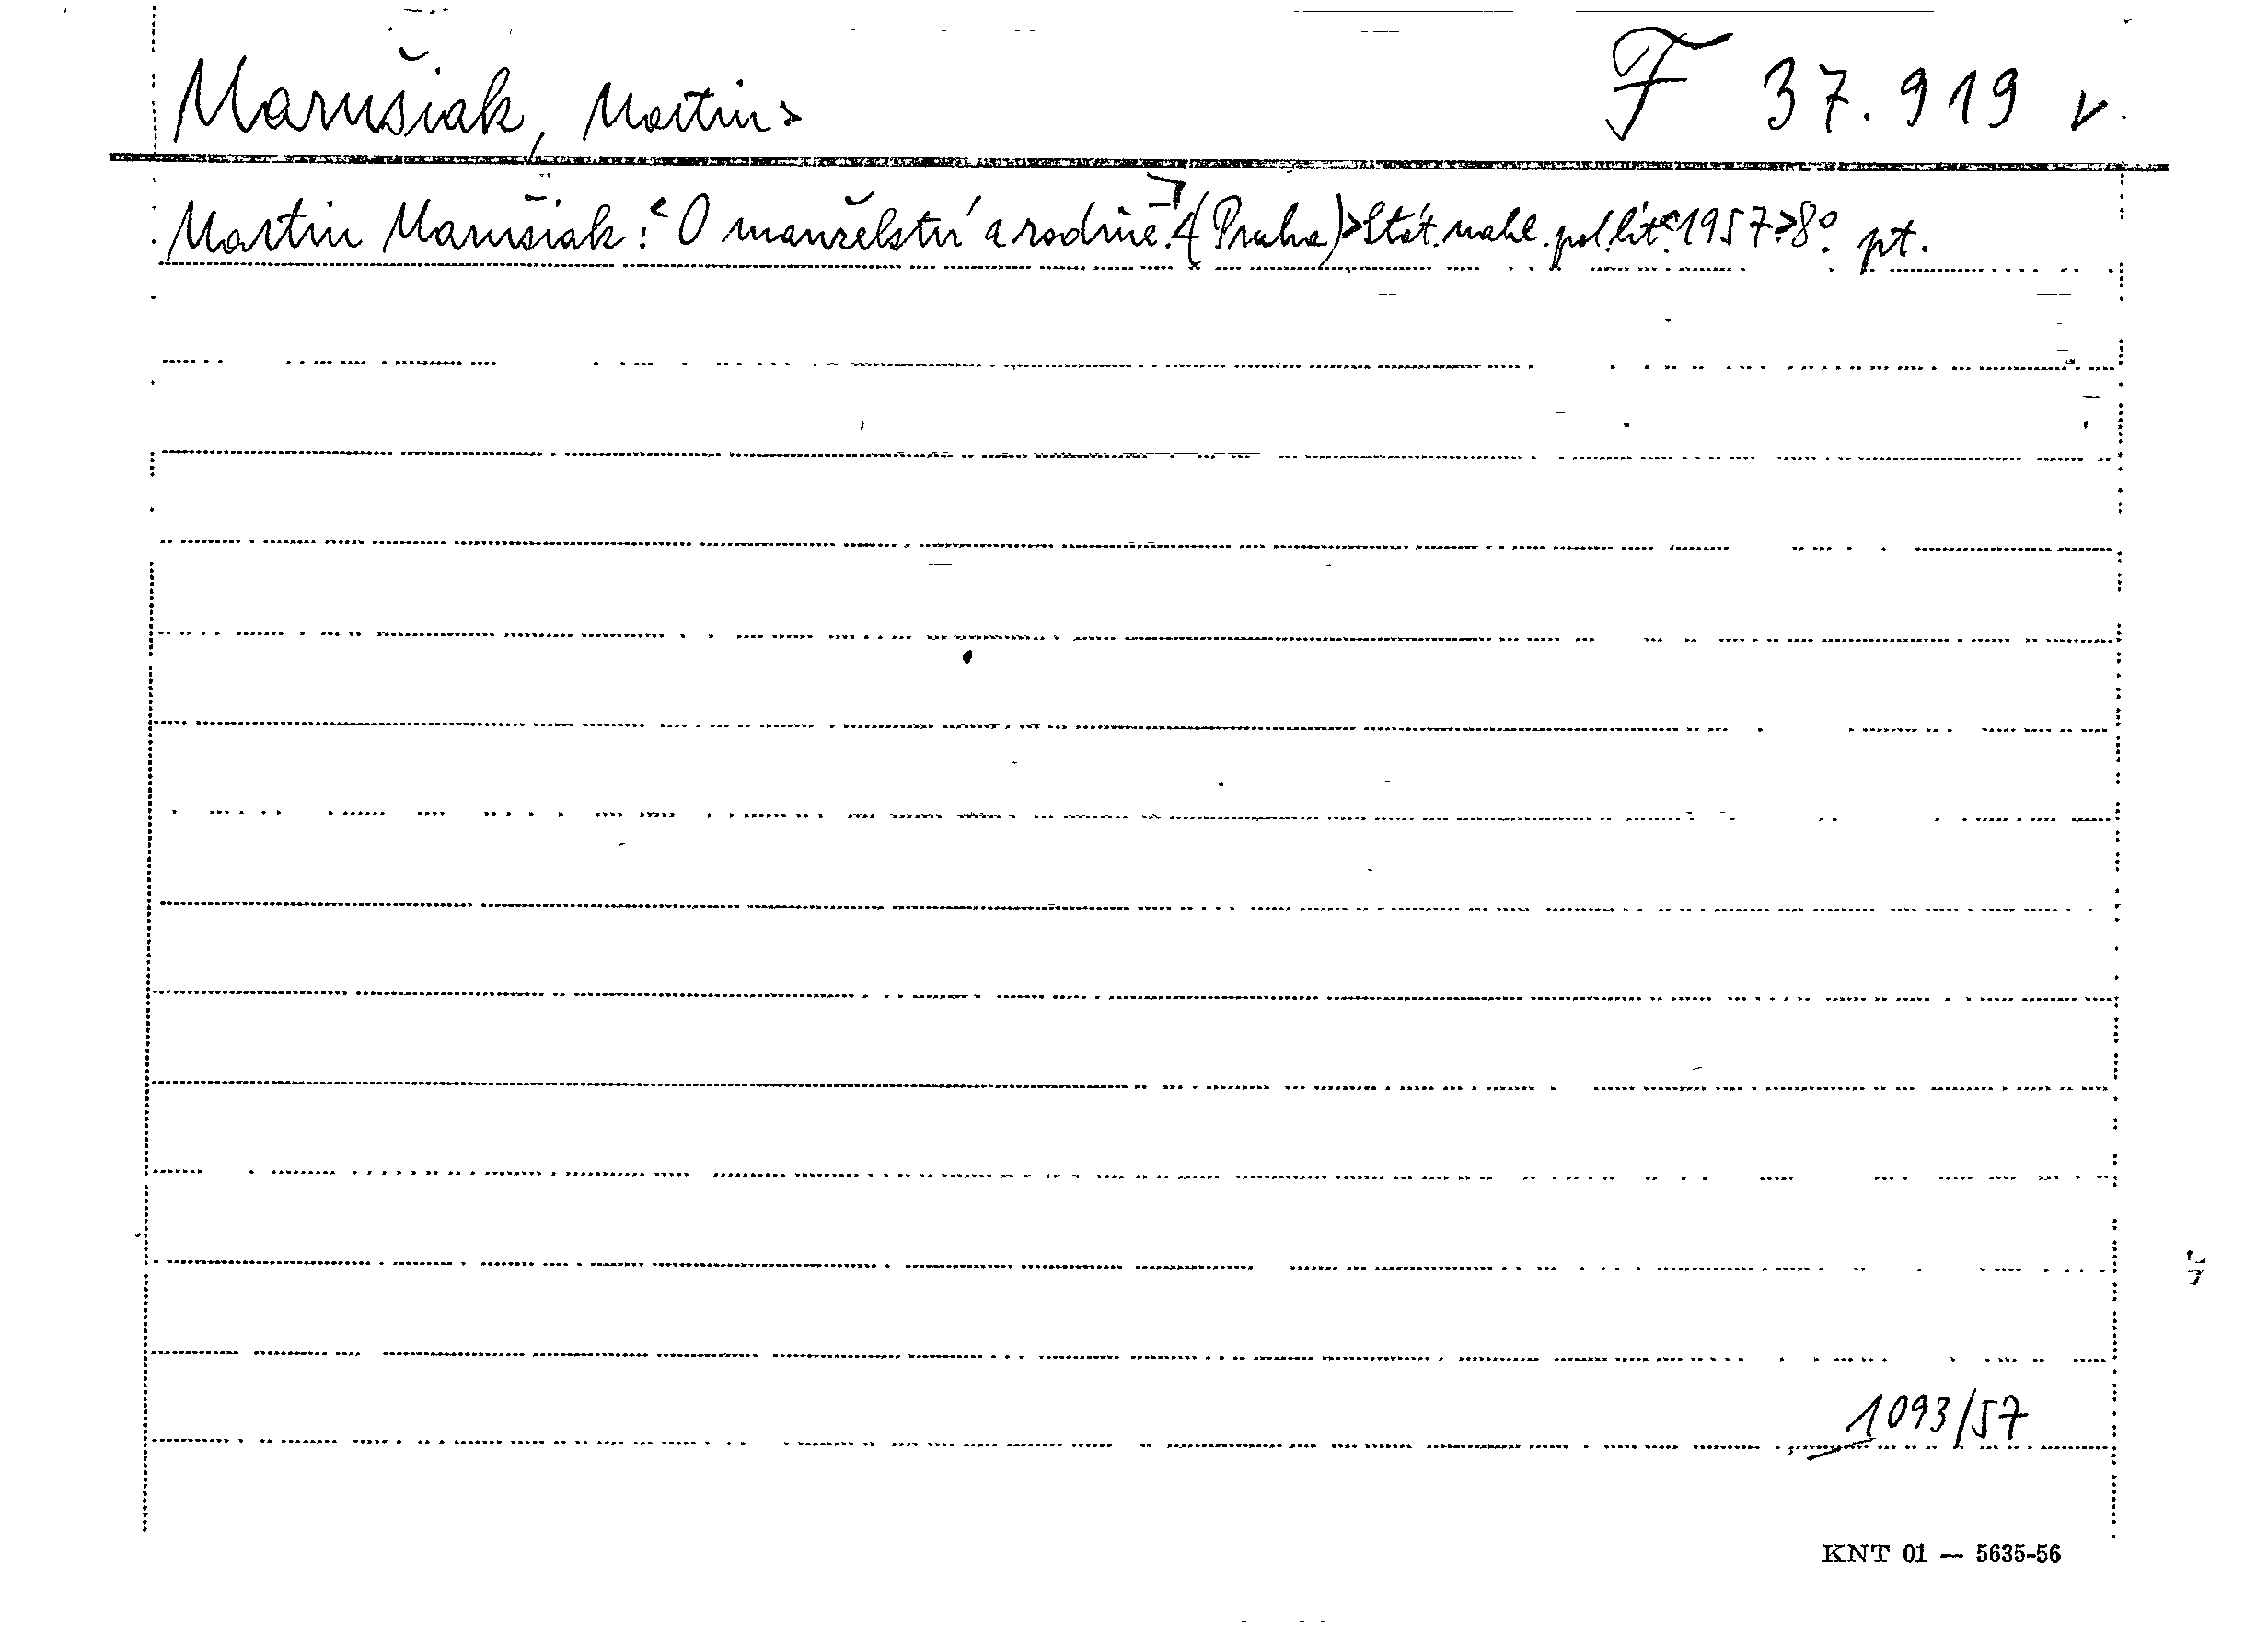 Marušiak, Martin> F 37.919 v.
Martin Marušiak:< O manželství a rodině.<(Praha)>Stát. nakl. pol. lit.<1957.>8° pt.
1093/57
KNT 01 — 5635-56